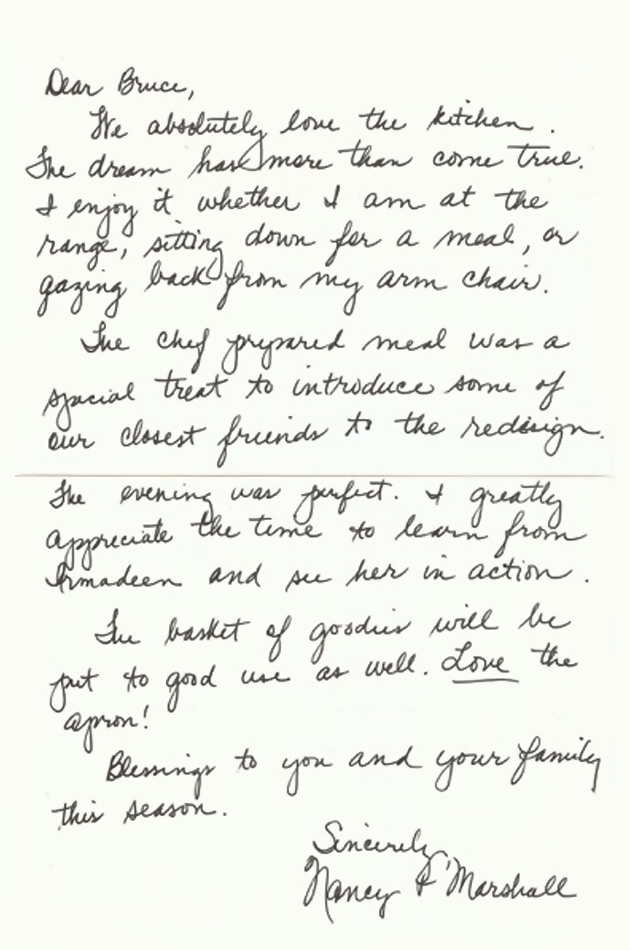 Dear Bruce,
We absolutely love the kitchen.
The dream has more than come true.
I enjoy it whether I am at the
range, sitting down for a meal, or
gazing back from my arm chair.
The chef prepared meal was a
special treat to introduce some of
our closest friends to the redesign.
The evening was perfect. I greatly
appreciate the time to learn from
Irmadeen and see her in action.
The basket of goodies will be
put to good use as well. Love the
apron!
Blessings to you and your family
this season.
Sincerely,
Nancy & Marshall